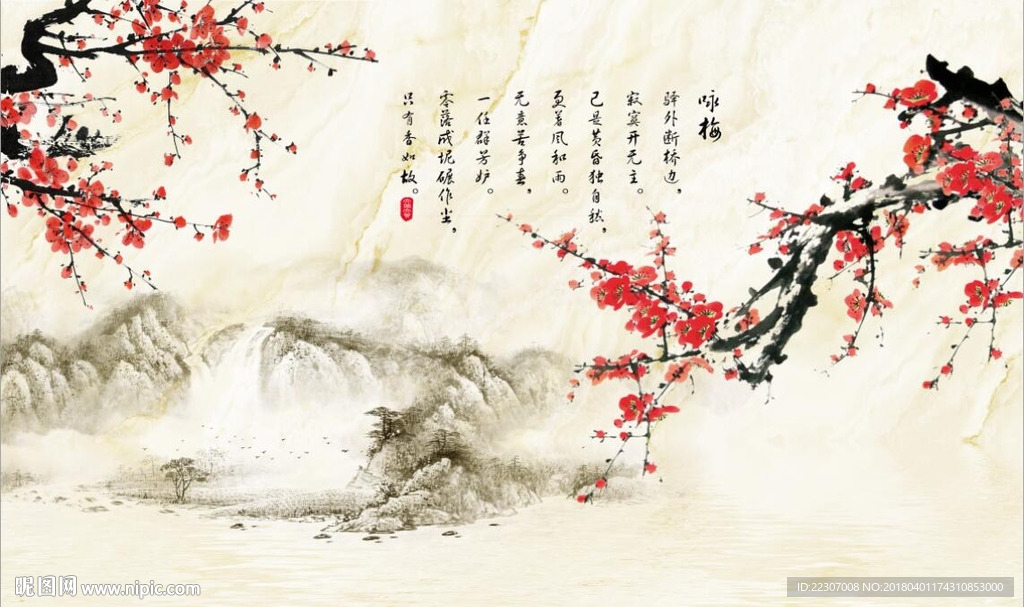 咏梅
驿外断桥边，
寂寞开无主。
已是黄昏独自愁，
更著风和雨。
无意苦争春，
一任群芳妒。
零落成坭碾作尘，
只有香如故。
昵图网 www.nipic.com
ID:22307008 NO:20180401174310853000